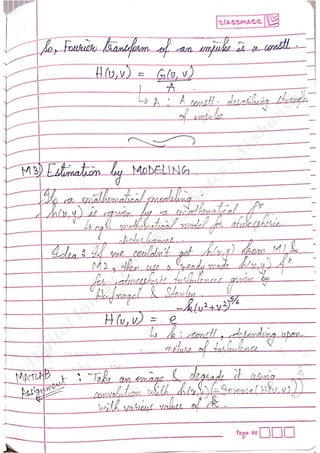 classmate
So, Fourier transform of an impulse is a constt.
H(u,v) = G(u,v)
A
↳ A : A constt. describing strength
of impulse
M3) Estimation by MODELING
mathematical modeling :
h(x,y) is given by a mathematical fⁿ
↳ eg: mathematical model for atmospheric
disturbance.
Idea : If we couldn't get h(x,y) from M1 &
M2, then use a ready made h(x,y) fⁿ
for atmospheric turbulence given by
Hufnagel & Stanley
H(u,v) = e^{-k(u²+v²)^{5/6}}
↳ k : constt, depending upon
nature of turbulence
MATLAB Assignment : Take an image & degrade it using
convolution with h(x,y) (= Inverse(H(u,v)))
with various value of k.
Page No